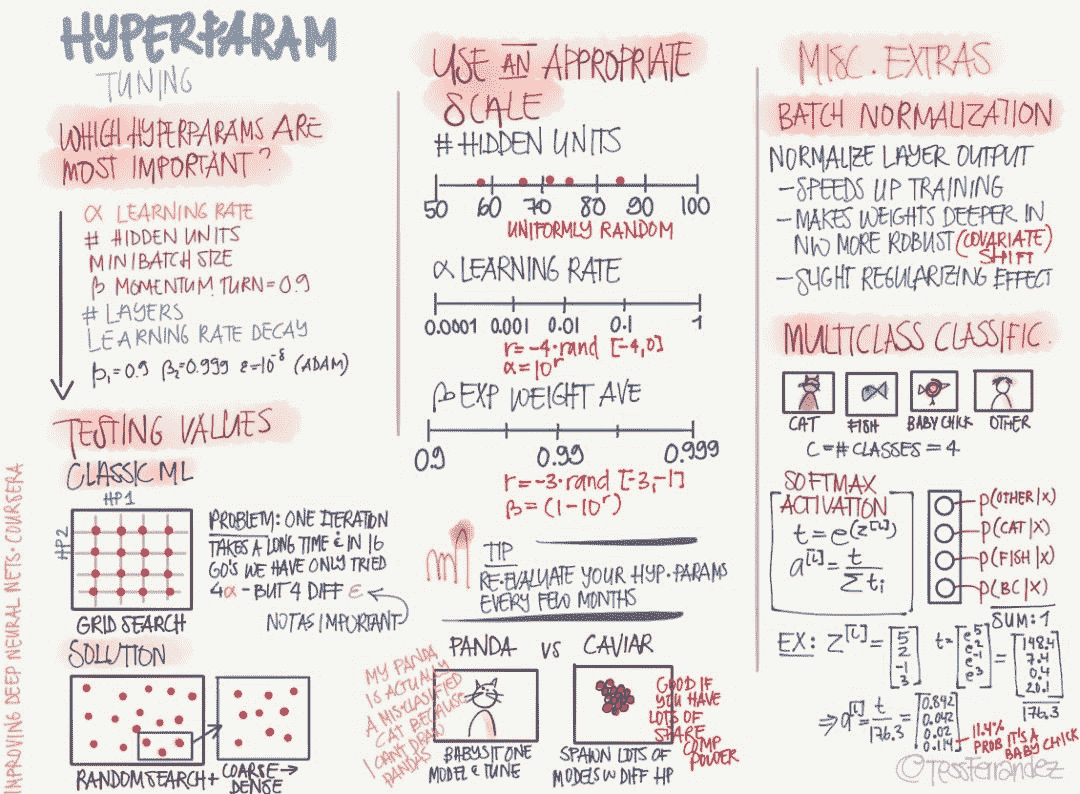 HYPERPARAM
TUNING
WHICH HYPERPARAMS ARE
MOST IMPORTANT?
α LEARNING RATE
# HIDDEN UNITS
MINIBATCH SIZE
β MOMENTUM TURN=0.9
# LAYERS
LEARNING RATE DECAY
β₁=0.9 β₂=0.999 ε=10⁻⁸ (ADAM)
TESTING VALUES
CLASSIC ML
HP1
HP2
GRID SEARCH
PROBLEM: ONE ITERATION
TAKES A LONG TIME & IN 16
GO'S WE HAVE ONLY TRIED
4α - BUT 4 DIFF ε
NOT AS IMPORTANT
SOLUTION
RANDOM SEARCH +
COARSE→
DENSE
IMPROVING DEEP NEURAL NETS · COURSERA
USE AN APPROPRIATE
SCALE
# HIDDEN UNITS
50 60 70 80 90 100
UNIFORMLY RANDOM
α LEARNING RATE
0.0001 0.001 0.01 0.1 1
r=-4·rand [-4,0]
α=10^r
β EXP WEIGHT AVE
0.9 0.99 0.999
r=-3·rand [-3,-1]
β=(1-10^r)
TIP
RE-EVALUATE YOUR HYP.PARAMS
EVERY FEW MONTHS
PANDA VS CAVIAR
MY PANDA
IS ACTUALLY
A MISCLASSIFIED
CAT BECAUSE
I CAN'T DRAW
PANDAS
BABYSIT ONE
MODEL & TUNE
GOOD IF
YOU HAVE
LOTS OF
SPARE
COMP
POWER
SPAWN LOTS OF
MODELS W DIFF HP
MISC. EXTRAS
BATCH NORMALIZATION
NORMALIZE LAYER OUTPUT
- SPEEDS UP TRAINING
- MAKES WEIGHTS DEEPER IN
NW MORE ROBUST (COVARIATE)
SHIFT
- SLIGHT REGULARIZING EFFECT
MULTICLASS CLASSIFIC.
CAT FISH BABY CHICK OTHER
C=# CLASSES = 4
SOFTMAX
ACTIVATION
t = e^(z^[L])
a^[L] = t / Σ tᵢ
P(OTHER|X)
P(CAT|X)
P(FISH|X)
P(BC|X)
SUM: 1
EX: Z^[L] = [5 2 -1 3] t = [e⁵ e² e⁻¹ e³] = [148.4 7.4 0.4 20.1]
176.3
⇒ a^[L] = t / 176.3 = [0.842 0.042 0.02 0.114]
11.4%
PROB IT'S A
BABY CHICK
@TessFerrandez